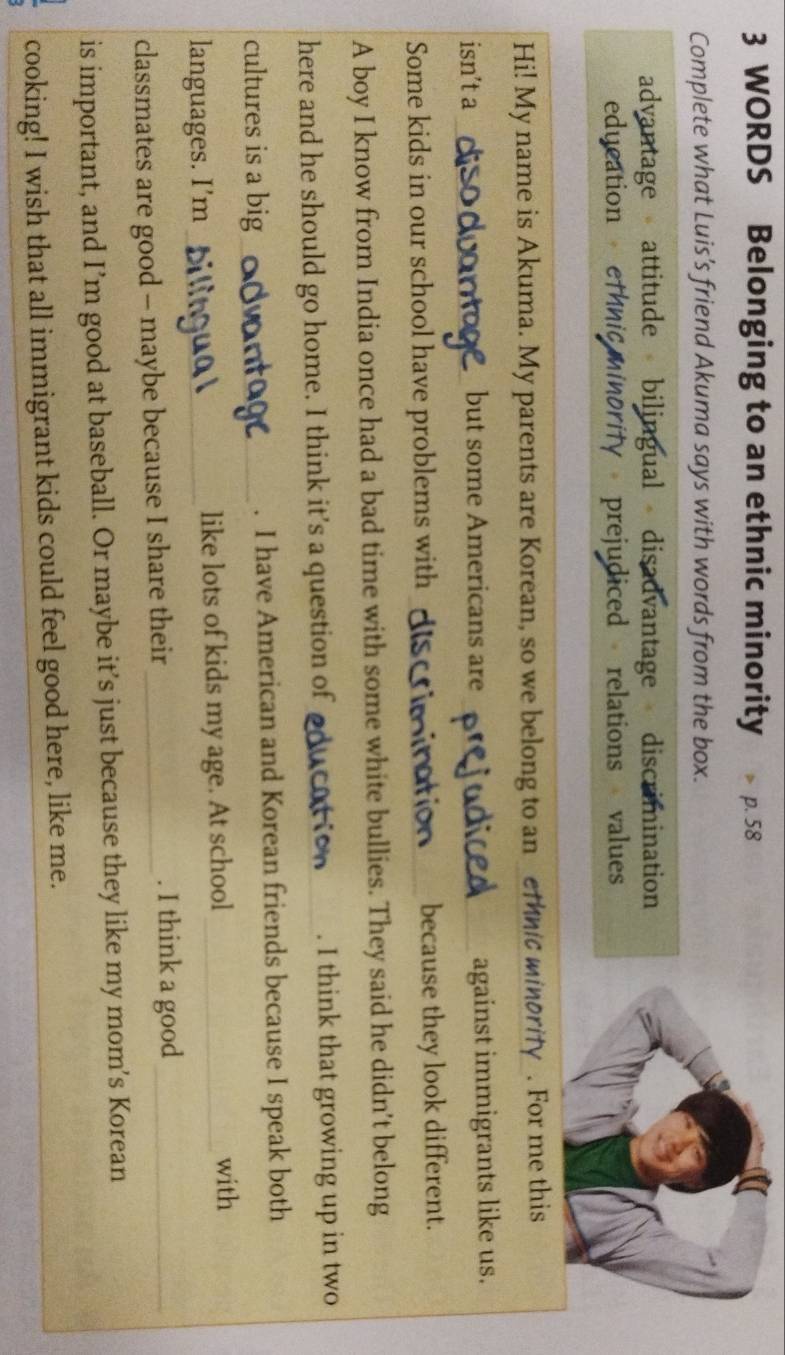 3 WORDS Belonging to an ethnic minority ▸ p. 58
Complete what Luis's friend Akuma says with words from the box.
advantage • attitude • bilingual • disadvantage • discrimination
education • ethnic minority • prejudiced • relations • values
Hi! My name is Akuma. My parents are Korean, so we belong to an ethnic minority. For me this
isn't a disadvantage but some Americans are prejudiced against immigrants like us.
Some kids in our school have problems with discrimination because they look different.
A boy I know from India once had a bad time with some white bullies. They said he didn't belong
here and he should go home. I think it's a question of education. I think that growing up in two
cultures is a big advantage. I have American and Korean friends because I speak both
languages. I'm bilingual like lots of kids my age. At school ____ with
classmates are good – maybe because I share their ____. I think a good ____
is important, and I'm good at baseball. Or maybe it's just because they like my mom's Korean
cooking! I wish that all immigrant kids could feel good here, like me.